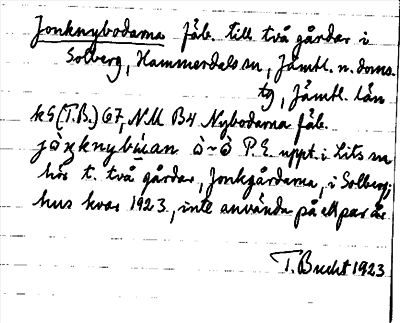 Jonknybodarna fäb. till två gårdar i
Solberg, Hammerdals sn, Jämtl. n. doms.
tg, Jämtl. län
k5 (T.B.) 67, NM B4 Nybodarna fäb.
ò~ò P.E. uppt. i Lits sn
hör t. två gårdar, Jonkgårdarna, i Solberg;
hus kvar 1923, inte använda på ett par år
T. Bucht 1923